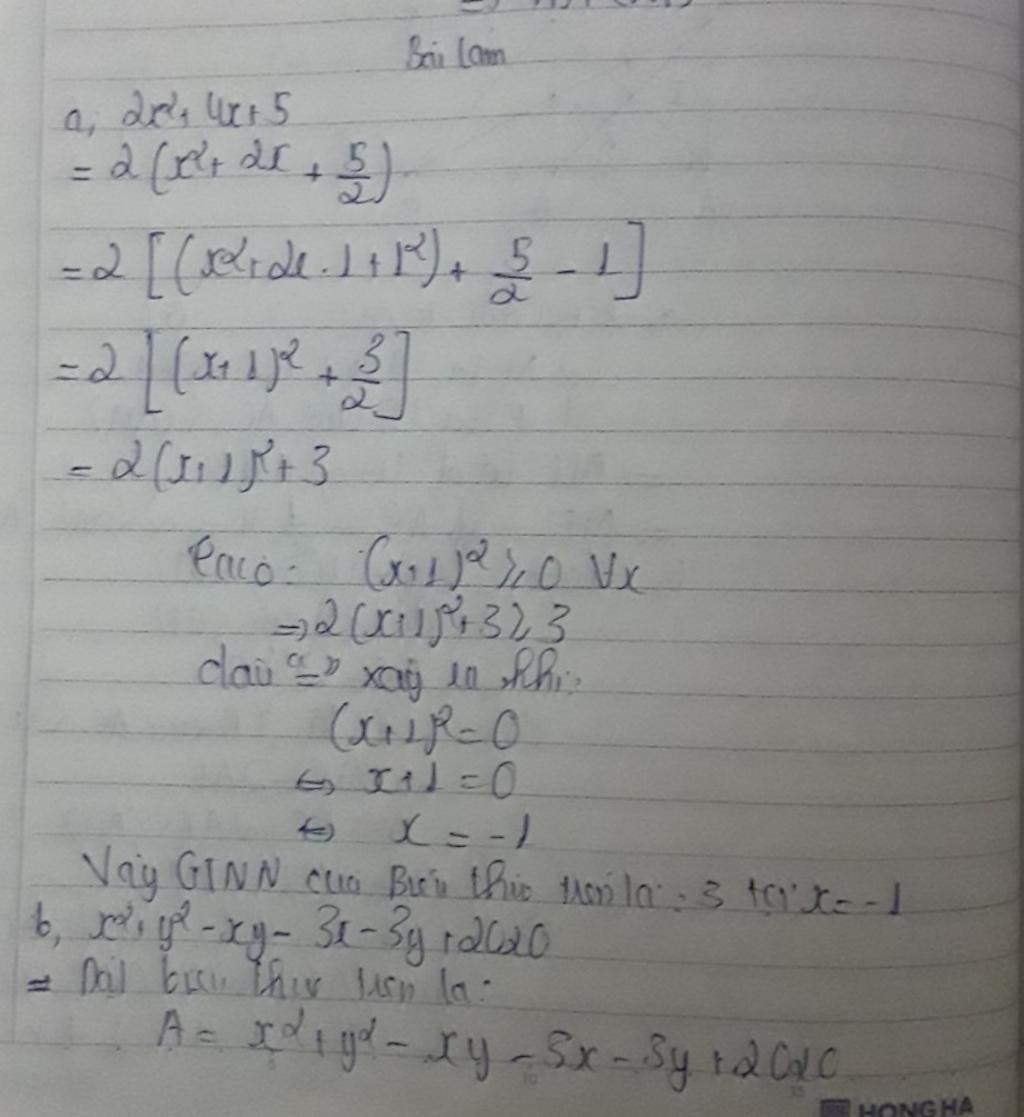 Bài làm
a, 2x² + 4x + 5
= 2 (x² + 2x + 5/2)
= 2 [(x² + 2x . 1 + 1²) + 5/2 - 1]
= 2 [(x + 1)² + 3/2]
= 2 (x + 1)² + 3
Ta có: (x + 1)² ≥ 0 ∀x
⇒ 2 (x + 1)² + 3 ≥ 3
dấu "=" xảy ra khi:
(x + 1)² = 0
⇔ x + 1 = 0
⇔ x = -1
Vậy GTNN của Biểu thức trên là: 3 tại x = -1
b, x² + y² - xy - 3x - 3y + 2020
= Đặt biểu thức trên là:
A = x² + y² - xy - 3x - 3y + 2020
HONG HA